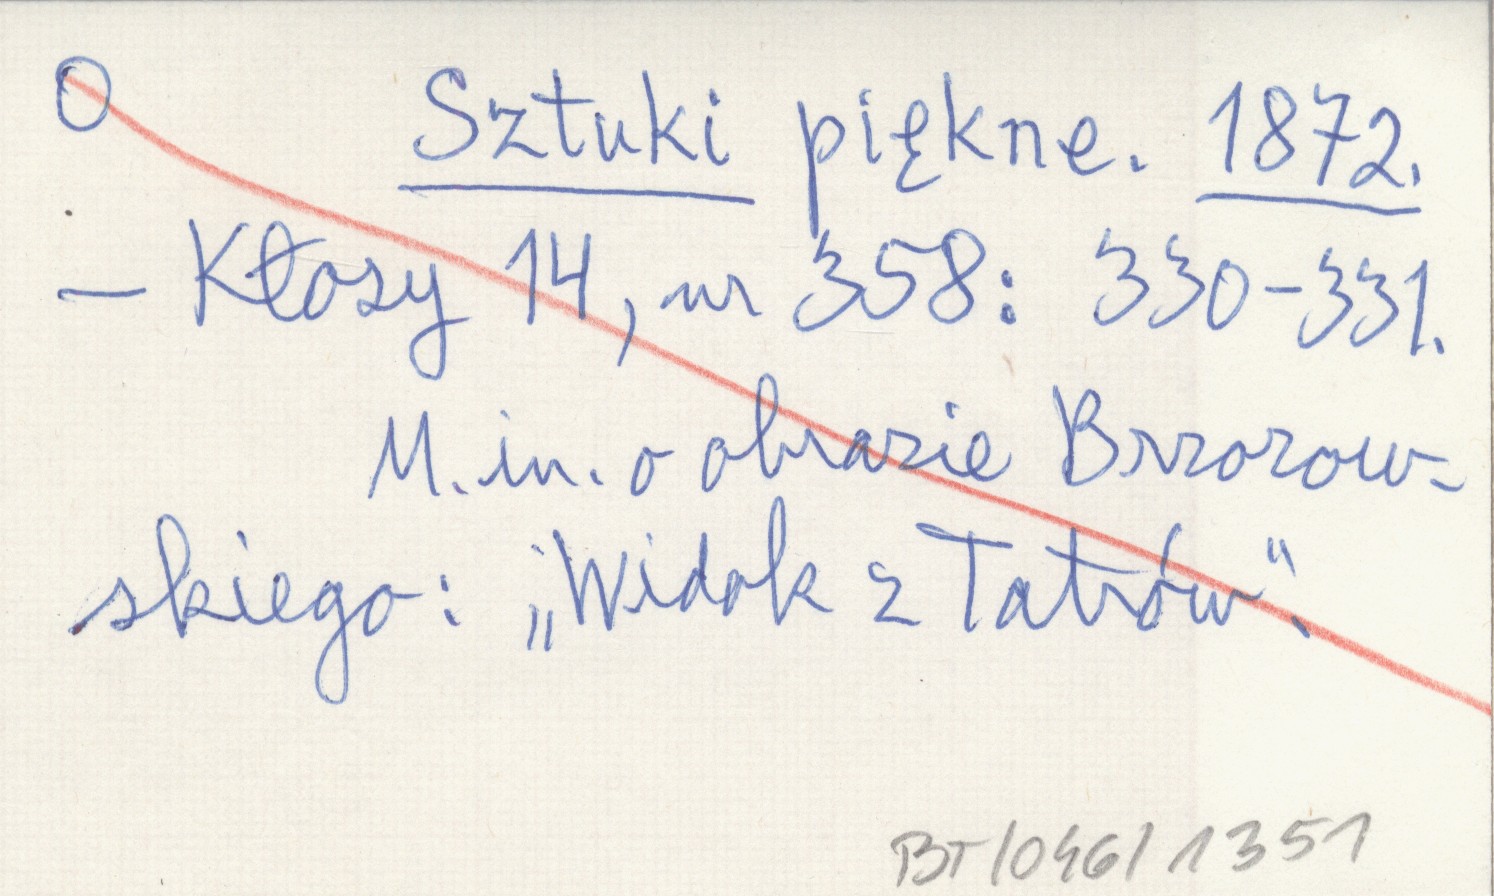 O Sztuki piękne. 1872.
– Kłosy 14, nr 358: 330-331.
M.in. o obrazie Brzozow-
skiego: „Widok z Tatrów".
BT/046/1351